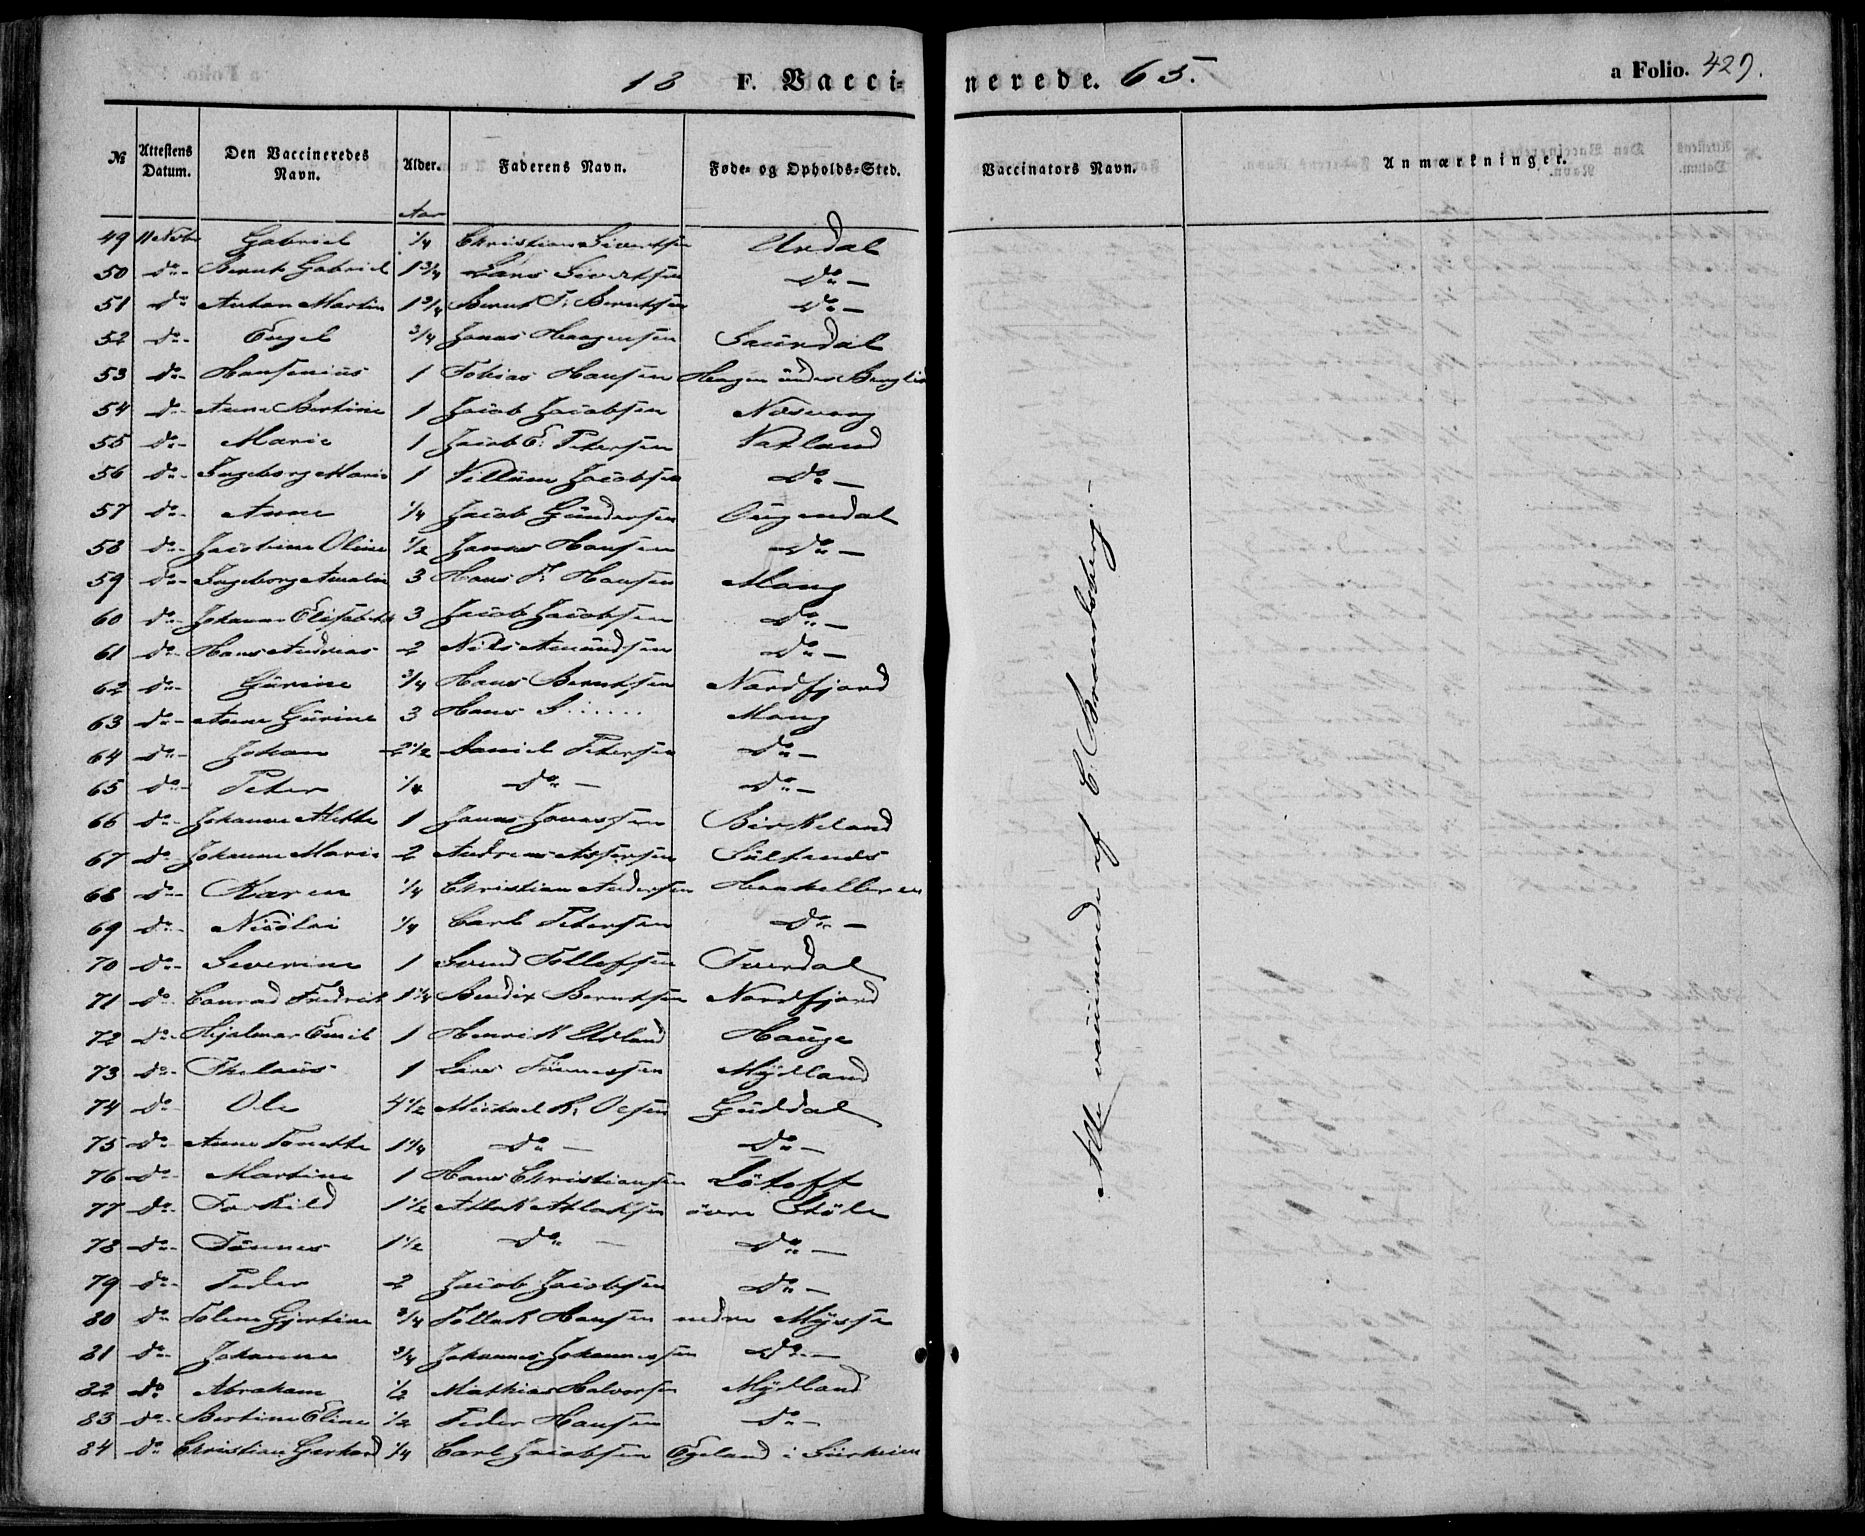 18 F. Vacci-nerede. 65. a Folio. 429.
№ Attestens Datum. Den Vaccineredes Navn. Alder. Faderens Navn. Føde- og Opholds-Sted. Vaccinators Navn. Anmærkninger.
Aar
49 11 Novbr Gabriel 1/4 Christian Sivertsen Urdal
50 Do Bernt Gabriel 1 3/4 Lars Sivertsen Do
51 Do Anton Martin 1 3/4 Bernt T. Berntsen Do
52 Do Engel 3/4 Jonas Haagensen Saurdal
53 Do Hansenius 1 Tobias Hansen Haugen under
54 Do Anne Bertine 1 Jacob Jacobsen Næsvog
55 Do Marie 1 Jacob E. Petersen Vatland
56 Do Ingeborg Marie 1 Villum Jacobsen Do
57 Do Anne 1/4 Jacob Gundersen Ougendal
58 Do Jacobine Oline 1/2 Jonas Hansen Do
59 Do Ingeborg Amalia 3 Hans F. Hansen Mong
60 Do Johanne Elisabeth 3 Jacob Jacobsen Do
61 Do Hans Andreas 2 Nils Amundsen Do
62 Do Gurine 3/4 Hans Berntsen Nordfjord
63 Do Anne Gurine 3 Hans S...... Mong
64 Do Johan 2 1/2 Daniel Petersen Do
65 Do Peter 1/4 Do Do
66 Do Johanne Mette 1 Jonas Jonassen Birkeland
67 Do Johanne Marie 2 Andreas Assersen
68 Do Karen 1/4 Christian Andersen Haakelleren
69 Do Nicolai 1/4 Carl Petersen Do
70 Do Severine 1 Svend Tollefsen Tuerdal
71 Do Conrad Fredrik 1 1/4 Bendix Berntsen Nordfjord
72 Do Hjalmar Emil 1 Henrik Urland Hauge
73 Do Thelaus 1 Lars Tønnessen Mydland
74 Do Ole 4 1/2 Michael K. Olsen Guddal
75 Do Anne Tonette 1 1/4 Do Do
76 Do Martine 1 Hans Christiansen Løtoft
77 Do Torkild 1 1/2 Atlak Atlaksen øvre Støle
78 Do Tønnes 1 1/2 Do Do
79 Do Peder 2 Jacob Jacobsen Do
80 Do Tolene Gjertine 3/4 Tollak Hansen nedre Myssa
81 Do Johanne 3/4 Johannes Johannessen Do
82 Do Abraham 1/2 Mathias Halvorsen Mydland
83 Do Bertine Eline 1/2 Peder Hansen Do
84 Do Christian Gerhard 1/4 Carl Jacobsen Egeland i Surheien
Alle vaccinerede af E. Bramdsberg.